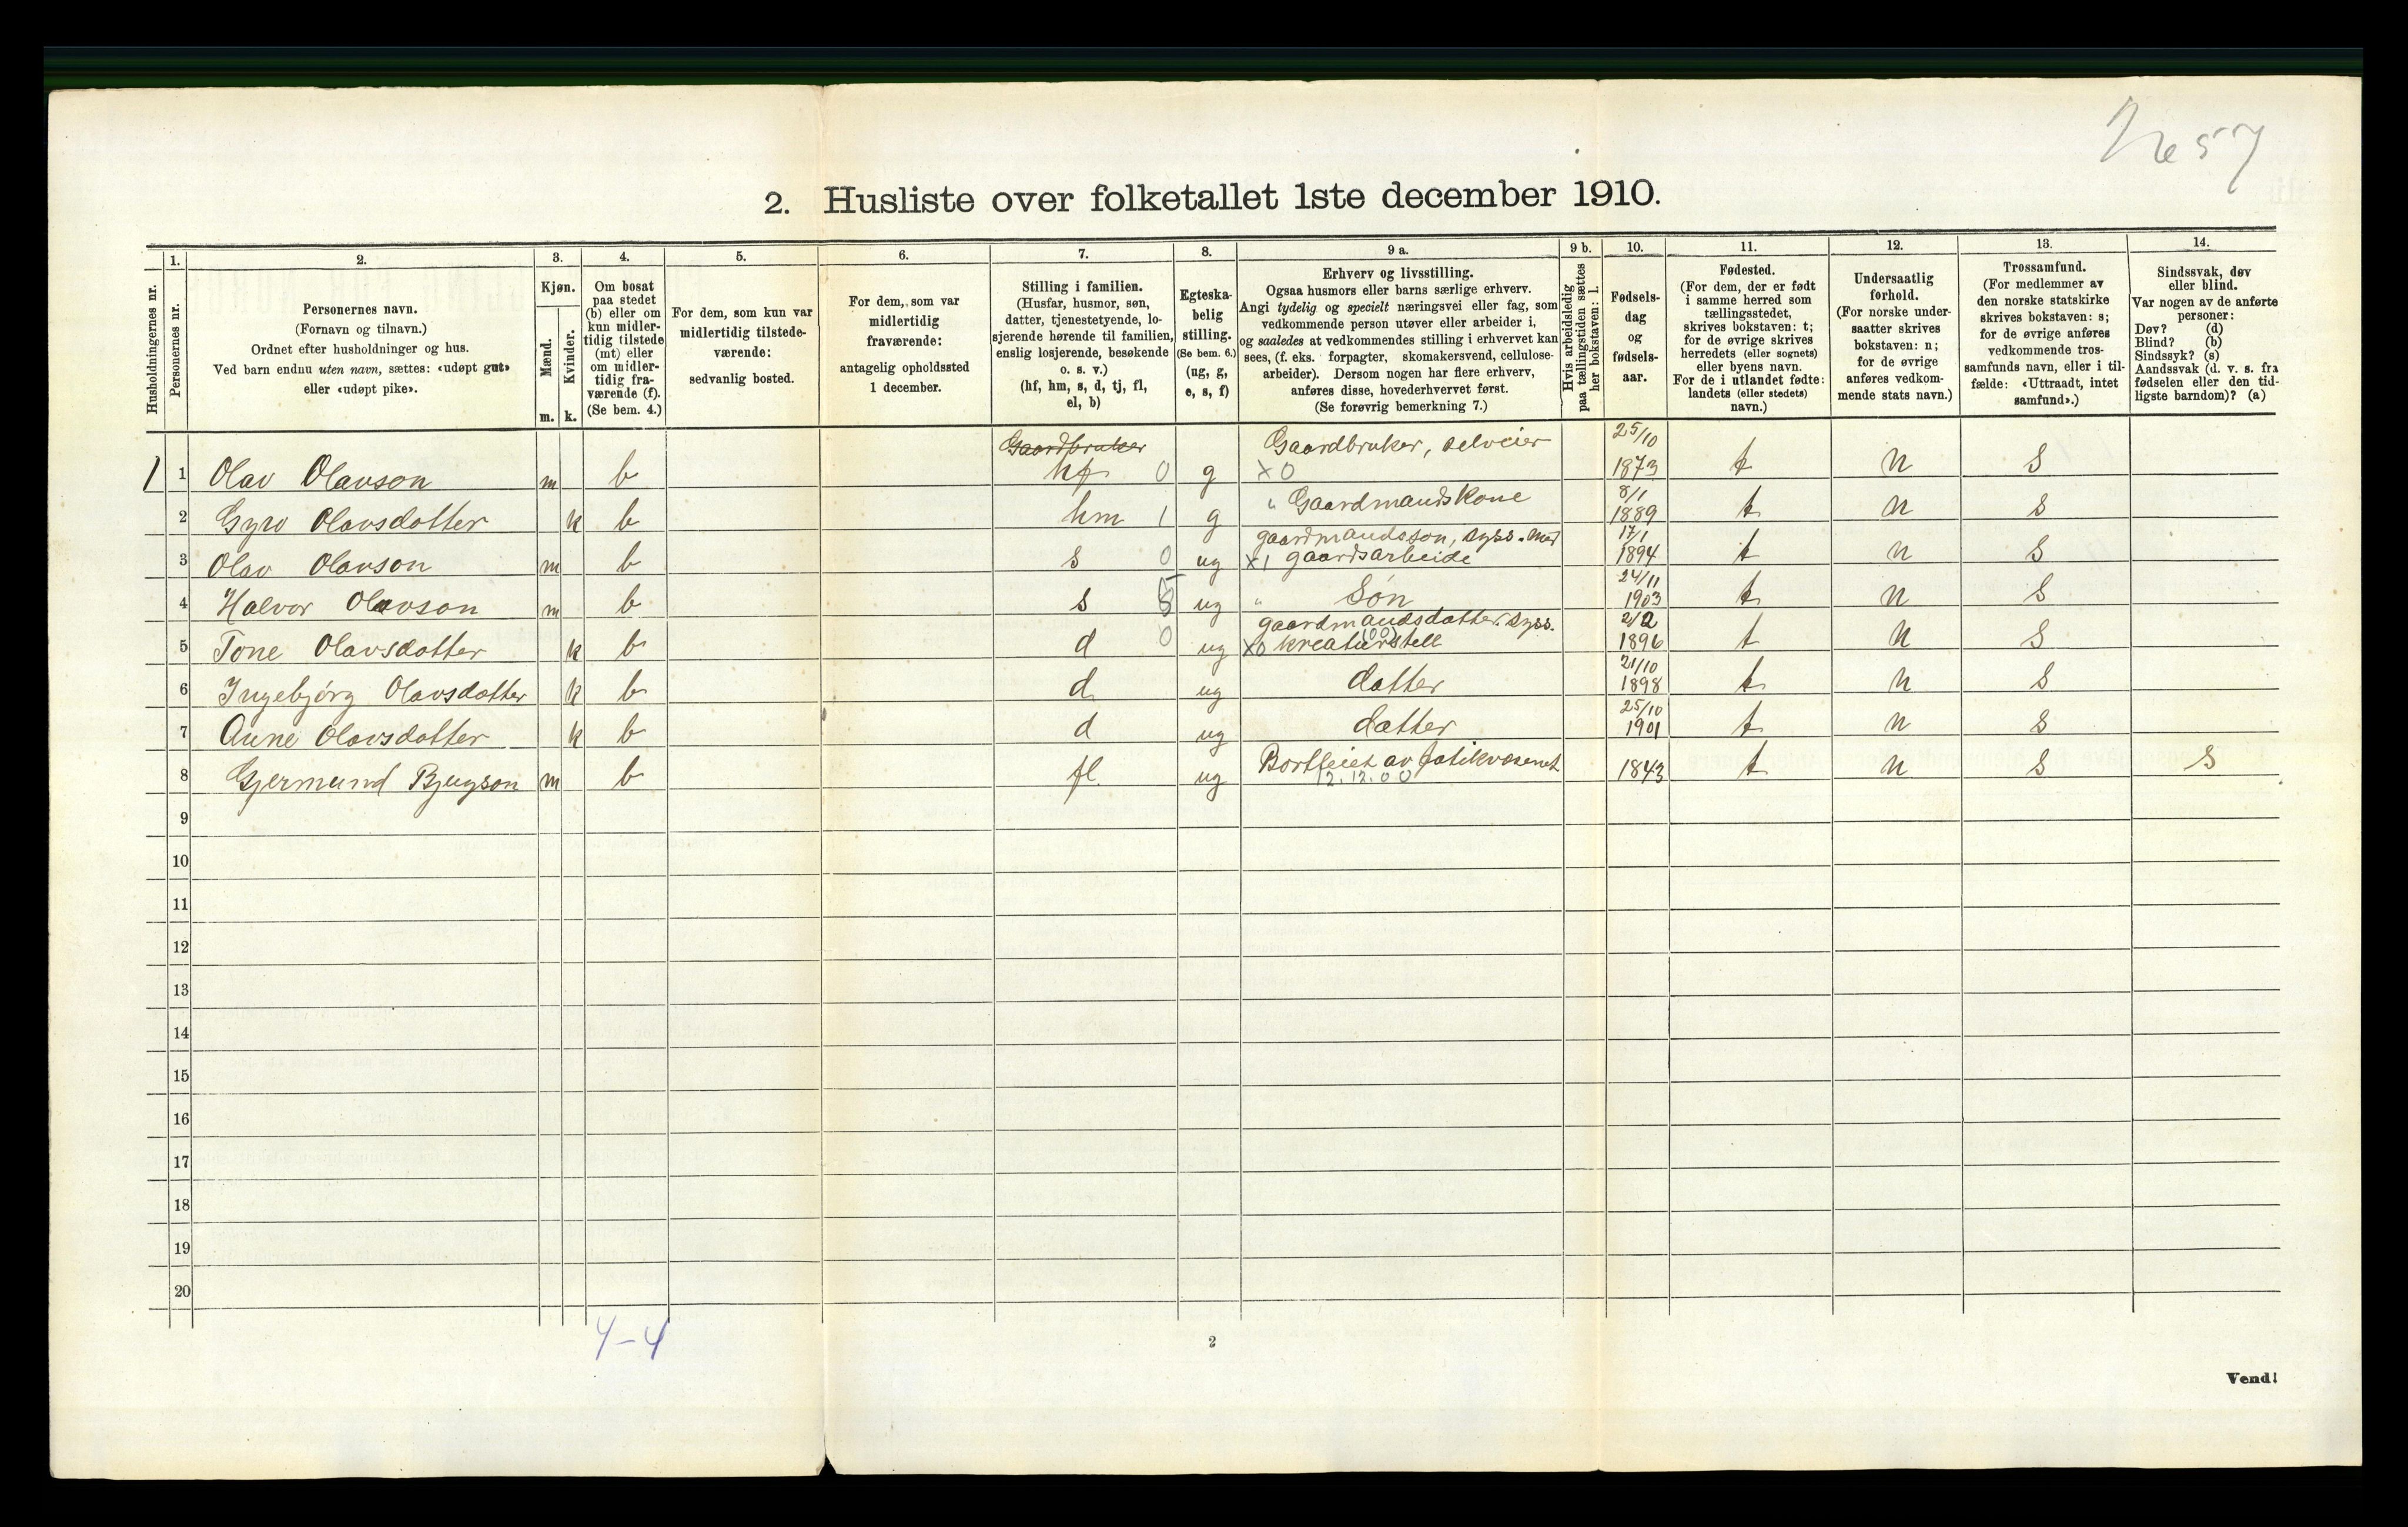 No 57
2. Husliste over folketallet 1ste december 1910.
Husholdningernes nr.
1.
Personernes nr.
2.
Personernes navn.
(Fornavn og tilnavn.)
Ordnet efter husholdninger og hus.
Ved barn endnu uten navn, sættes: «udøpt gut»
eller «udøpt pike».
3.
Kjøn.
Mænd.
Kvinder.
m. k.
4.
Om bosat
paa stedet
(b) eller om
kun midler-
tidig tilstede
(mt) eller
om midler-
tidig fra-
værende (f).
(Se bem. 4.)
5.
For dem, som kun var
midlertidig tilstede-
værende:
sedvanlig bosted.
6.
For dem, som var
midlertidig
fraværende:
antagelig opholdssted
1 december.
7.
Stilling i familien.
(Husfar, husmor, søn,
datter, tjenestetyende, lo-
sjerende hørende til familien,
enslig losjerende, besøkende
o. s. v.)
(hf, hm, s, d, tj, fl,
el, b)
8.
Egteska-
belig
stilling.
(Se bem. 6.)
(ug, g,
e, s, f)
9 a.
Erhverv og livsstilling.
Ogsaa husmors eller barns særlige erhverv.
Angi tydelig og specielt næringsvei eller fag, som
vedkommende person utøver eller arbeider i,
og saaledes at vedkommendes stilling i erhvervet kan
sees, (f. eks. forpagter, skomakersvend, cellulose-
arbeider). Dersom nogen har flere erhverv,
anføres disse, hovederhvervet først.
(Se forøvrig bemerkning 7.)
9 b.
Hvis arbeidsledig
paa tællingstiden sættes
her bokstaven: l.
10.
Fødsels-
dag
og
fødsels-
aar.
11.
Fødested.
(For dem, der er født
i samme herred som
tællingsstedet,
skrives bokstaven: t;
for de øvrige skrives
herredets (eller sognets)
eller byens navn.
For de i utlandet fødte:
landets (eller stedets)
navn.)
12.
Undersaatlig
forhold.
(For norske under-
saatter skrives
bokstaven: n;
for de øvrige
anføres vedkom-
mende stats navn.)
13.
Trossamfund.
(For medlemmer av
den norske statskirke
skrives bokstaven: s;
for de øvrige anføres
vedkommende tros-
samfunds navn, eller i til-
fælde: «Uttraadt, intet
samfund».)
14.
Sindssvak, døv
eller blind.
Var nogen av de anførte
personer:
Døv? (d)
Blind? (b)
Sindssyk? (s)
Aandssvak (d. v. s. fra
fødselen eller den tid-
ligste barndom)? (a)
Gaardbruker Gaardbruker, selveier 25/10
1 1 Olav Olavson m b hf 0 g x0 1873 t n s
2 Gyro Olavsdatter k b hm 1 g " Gaardmandskone 8/1 1889 t n s
gaardmandsson, syss. med 17/1
3 Olav Olavson m b s 0 ug x1 gaardsarbeide 1894 t n s
4 Halvor Olavson m b s 5 ug " Søn 24/11 1903 t n s
gaardmandsdatter. syss. 2/2
5 Tone Olavsdatter k b d 0 ug x0 kreaturstell (00) 1896 t n s
6 Ingebjørg Olavsdatter k b d ug datter 21/10 1898 t n s
7 Aune Olavsdatter k b d ug datter 25/10 1901 t n s
8 Gjermund Bjugson m b fl. ug Bortleiet av fatikvæsenet 1843 t n s s
12.12.00
9
10
11
12
13
14
15
16
17
18
19
20
4-4
2
Vend!